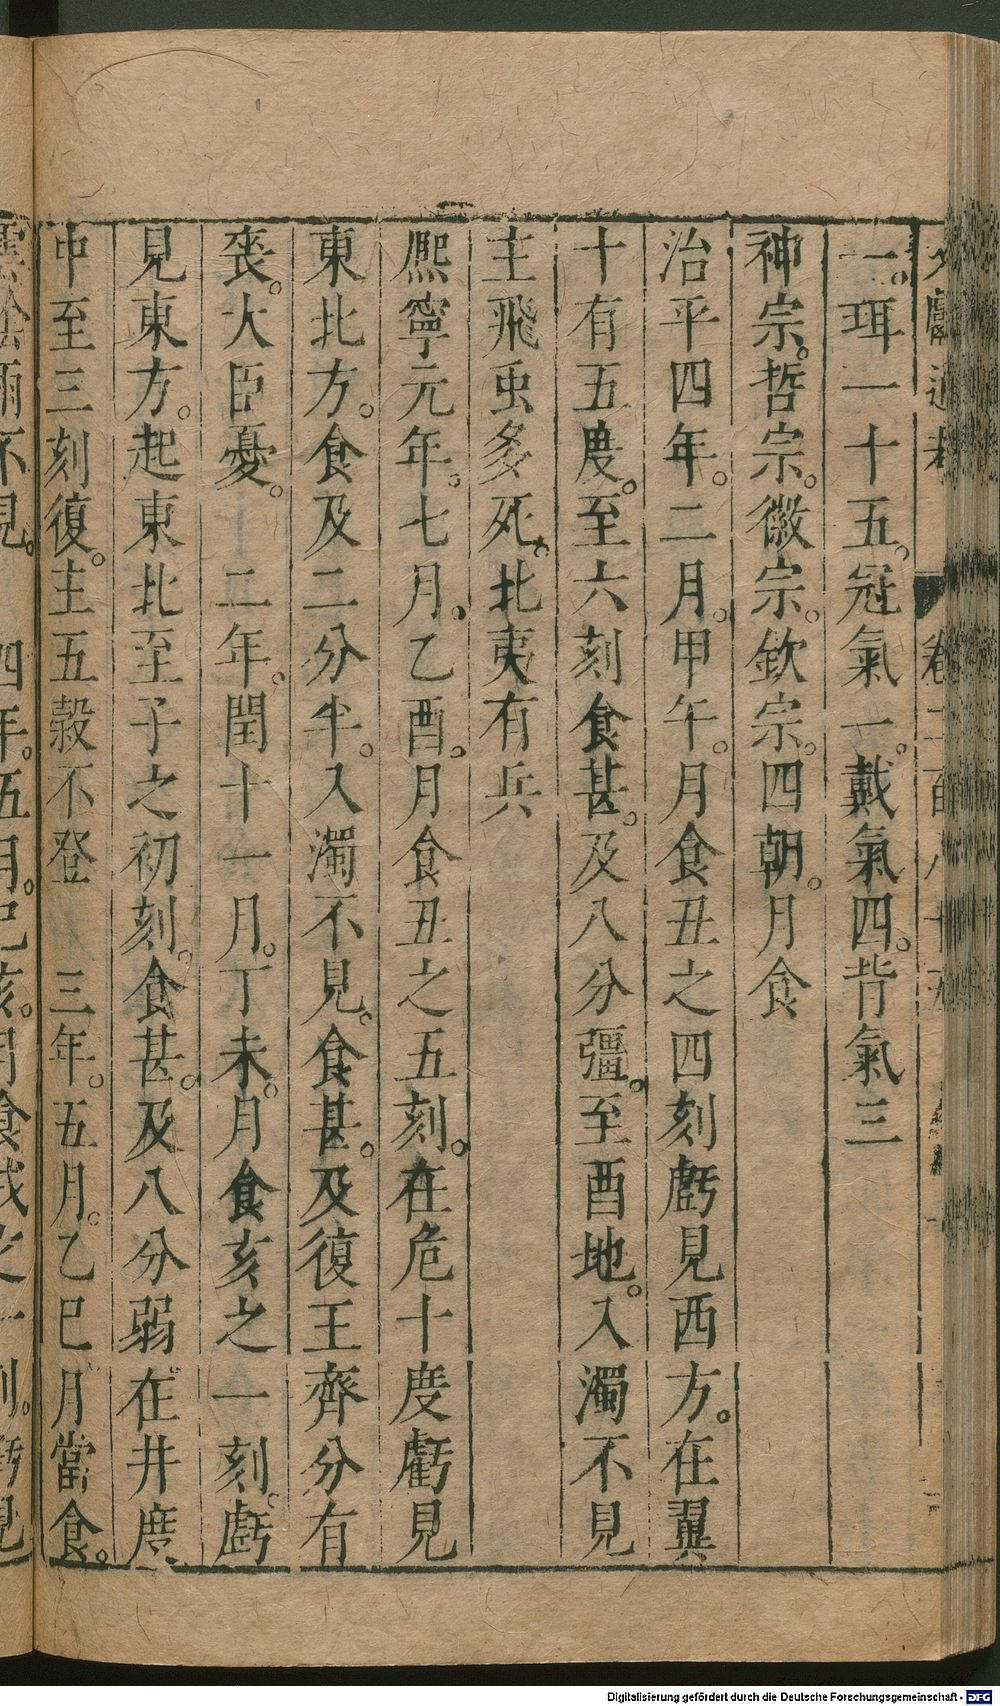 文獻通考 卷二百八十五
一。珥一十五。冠氣一。戴氣四。背氣三
神宗。哲宗。徽宗。欽宗。四朝。月食
治平四年。二月。甲午。月食丑之四刻虧見西方。在翼
十有五度。至六刻食甚。及八分彊。至酉地。入濁不見
主飛虫多死。北夷有兵
熈寧元年。七月。乙酉。月食丑之五刻。在危十度虧見
東北方。食及二分半。入濁不見。食甚。及復王齊分有
喪。大臣憂。 二年。閏十一月。丁未。月食亥之一刻。虧
見東方。起東北至子之初刻。食甚。及八分弱。在井度
中至三刻復。主五榖不登 三年。五月。乙巳月當食。
雲陰雨不見。 四年。五月。己亥。月食戌之一刻。虧見
Digitalisierung gefördert durch die Deutsche Forschungsgemeinschaft - DFG